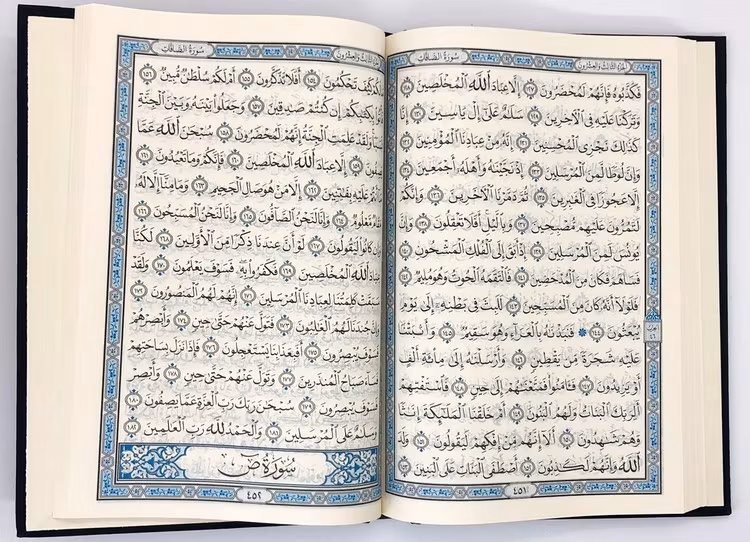 سُورَةُ الصَّافَّاتِ
الجُزْءُ الثَّالِثُ وَالعِشْرُونَ
فَكَذَّبُوهُ فَإِنَّهُمْ لَمُحْضَرُونَ ١٢٧ إِلَّا عِبَادَ ٱللَّهِ ٱلْمُخْلَصِينَ ١٢٨
وَتَرَكْنَا عَلَيْهِ فِي ٱلْءَاخِرِينَ ١٢٩ سَلَٰمٌ عَلَىٰٓ إِلْ يَاسِينَ ١٣٠ إِنَّا
كَذَٰلِكَ نَجْزِي ٱلْمُحْسِنِينَ ١٣١ إِنَّهُۥ مِنْ عِبَادِنَا ٱلْمُؤْمِنِينَ ١٣٢
وَإِنَّ لُوطًا لَّمِنَ ٱلْمُرْسَلِينَ ١٣٣ إِذْ نَجَّيْنَٰهُ وَأَهْلَهُۥٓ أَجْمَعِينَ ١٣٤
إِلَّا عَجُوزًا فِي ٱلْغَٰبِرِينَ ١٣٥ ثُمَّ دَمَّرْنَا ٱلْءَاخَرِينَ ١٣٦ وَإِنَّكُمْ
لَتَمُرُّونَ عَلَيْهِم مُّصْبِحِينَ ١٣٧ وَبِٱلَّيْلِ أَفَلَا تَعْقِلُونَ ١٣٨ وَإِنَّ
يُونُسَ لَمِنَ ٱلْمُرْسَلِينَ ١٣٩ إِذْ أَبَقَ إِلَى ٱلْفُلْكِ ٱلْمَشْحُونِ ١٤٠
فَسَاهَمَ فَكَانَ مِنَ ٱلْمُدْحَضِينَ ١٤١ فَٱلْتَقَمَهُ ٱلْحُوتُ وَهُوَ مُلِيمٌ ١٤٢
فَلَوْلَآ أَنَّهُۥ كَانَ مِنَ ٱلْمُسَبِّحِينَ ١٤٣ لَلَبِثَ فِي بَطْنِهِۦٓ إِلَىٰ يَوْمِ
يُبْعَثُونَ ١٤٤ ۞ فَنَبَذْنَٰهُ بِٱلْعَرَآءِ وَهُوَ سَقِيمٌ ١٤٥ وَأَنۢبَتْنَا
عَلَيْهِ شَجَرَةً مِّن يَقْطِينٍ ١٤٦ وَأَرْسَلْنَٰهُ إِلَىٰ مِا۟ئَةِ أَلْفٍ
أَوْ يَزِيدُونَ ١٤٧ فَـَٔامَنُوا۟ فَمَتَّعْنَٰهُمْ إِلَىٰ حِينٍ ١٤٨ فَٱسْتَفْتِهِمْ
أَلِرَبِّكَ ٱلْبَنَاتُ وَلَهُمُ ٱلْبَنُونَ ١٤٩ أَمْ خَلَقْنَا ٱلْمَلَٰٓئِكَةَ إِنَٰثًا
وَهُمْ شَٰهِدُونَ ١٥٠ أَلَآ إِنَّهُم مِّنْ إِفْكِهِمْ لَيَقُولُونَ ١٥١ وَلَدَ
ٱللَّهُ وَإِنَّهُمْ لَكَٰذِبُونَ ١٥٢ أَصْطَفَى ٱلْبَنَاتِ عَلَى ٱلْبَنِينَ ١٥٣
حزب ٤٦
٤٥١
الجُزْءُ الثَّالِثُ وَالعِشْرُونَ
سُورَةُ الصَّافَّاتِ
كَيْفَ تَحْكُمُونَ ١٥٤ أَفَلَا تَذَكَّرُونَ ١٥٥ أَمْ لَكُمْ سُلْطَٰنٌ مُّبِينٌ ١٥٦
بِكِتَٰبِكُمْ إِن كُنتُمْ صَٰدِقِينَ ١٥٧ وَجَعَلُوا۟ بَيْنَهُۥ وَبَيْنَ ٱلْجِنَّةِ
نَسَبًا وَلَقَدْ عَلِمَتِ ٱلْجِنَّةُ إِنَّهُمْ لَمُحْضَرُونَ ١٥٨ سُبْحَٰنَ ٱللَّهِ عَمَّا
يَصِفُونَ ١٥٩ إِلَّا عِبَادَ ٱللَّهِ ٱلْمُخْلَصِينَ ١٦٠ فَإِنَّكُمْ وَمَا تَعْبُدُونَ ١٦١
عَلَيْهِ بِفَٰتِنِينَ ١٦٢ إِلَّا مَنْ هُوَ صَالِ ٱلْجَحِيمِ ١٦٣ وَمَا مِنَّآ إِلَّا لَهُۥ
مَقَامٌ مَّعْلُومٌ ١٦٤ وَإِنَّا لَنَحْنُ ٱلصَّآفُّونَ ١٦٥ وَإِنَّا لَنَحْنُ ٱلْمُسَبِّحُونَ ١٦٦
كَانُوا۟ لَيَقُولُونَ ١٦٧ لَوْ أَنَّ عِندَنَا ذِكْرًا مِّنَ ٱلْأَوَّلِينَ ١٦٨ لَكُنَّا
عِبَادَ ٱللَّهِ ٱلْمُخْلَصِينَ ١٦٩ فَكَفَرُوا۟ بِهِۦ فَسَوْفَ يَعْلَمُونَ ١٧٠ وَلَقَدْ
سَبَقَتْ كَلِمَتُنَا لِعِبَادِنَا ٱلْمُرْسَلِينَ ١٧١ إِنَّهُمْ لَهُمُ ٱلْمَنصُورُونَ ١٧٢
وَإِنَّ جُندَنَا لَهُمُ ٱلْغَٰلِبُونَ ١٧٣ فَتَوَلَّ عَنْهُمْ حَتَّىٰ حِينٍ ١٧٤ وَأَبْصِرْهُمْ
فَسَوْفَ يُبْصِرُونَ ١٧٥ أَفَبِعَذَابِنَا يَسْتَعْجِلُونَ ١٧٦ فَإِذَا نَزَلَ بِسَاحَتِهِمْ
فَسَآءَ صَبَاحُ ٱلْمُنذَرِينَ ١٧٧ وَتَوَلَّ عَنْهُمْ حَتَّىٰ حِينٍ ١٧٨ وَأَبْصِرْ
فَسَوْفَ يُبْصِرُونَ ١٧٩ سُبْحَٰنَ رَبِّكَ رَبِّ ٱلْعِزَّةِ عَمَّا يَصِفُونَ ١٨٠
وَسَلَٰمٌ عَلَى ٱلْمُرْسَلِينَ ١٨١ وَٱلْحَمْدُ لِلَّهِ رَبِّ ٱلْعَٰلَمِينَ ١٨٢
سُورَةُ صٓ
٤٥٢